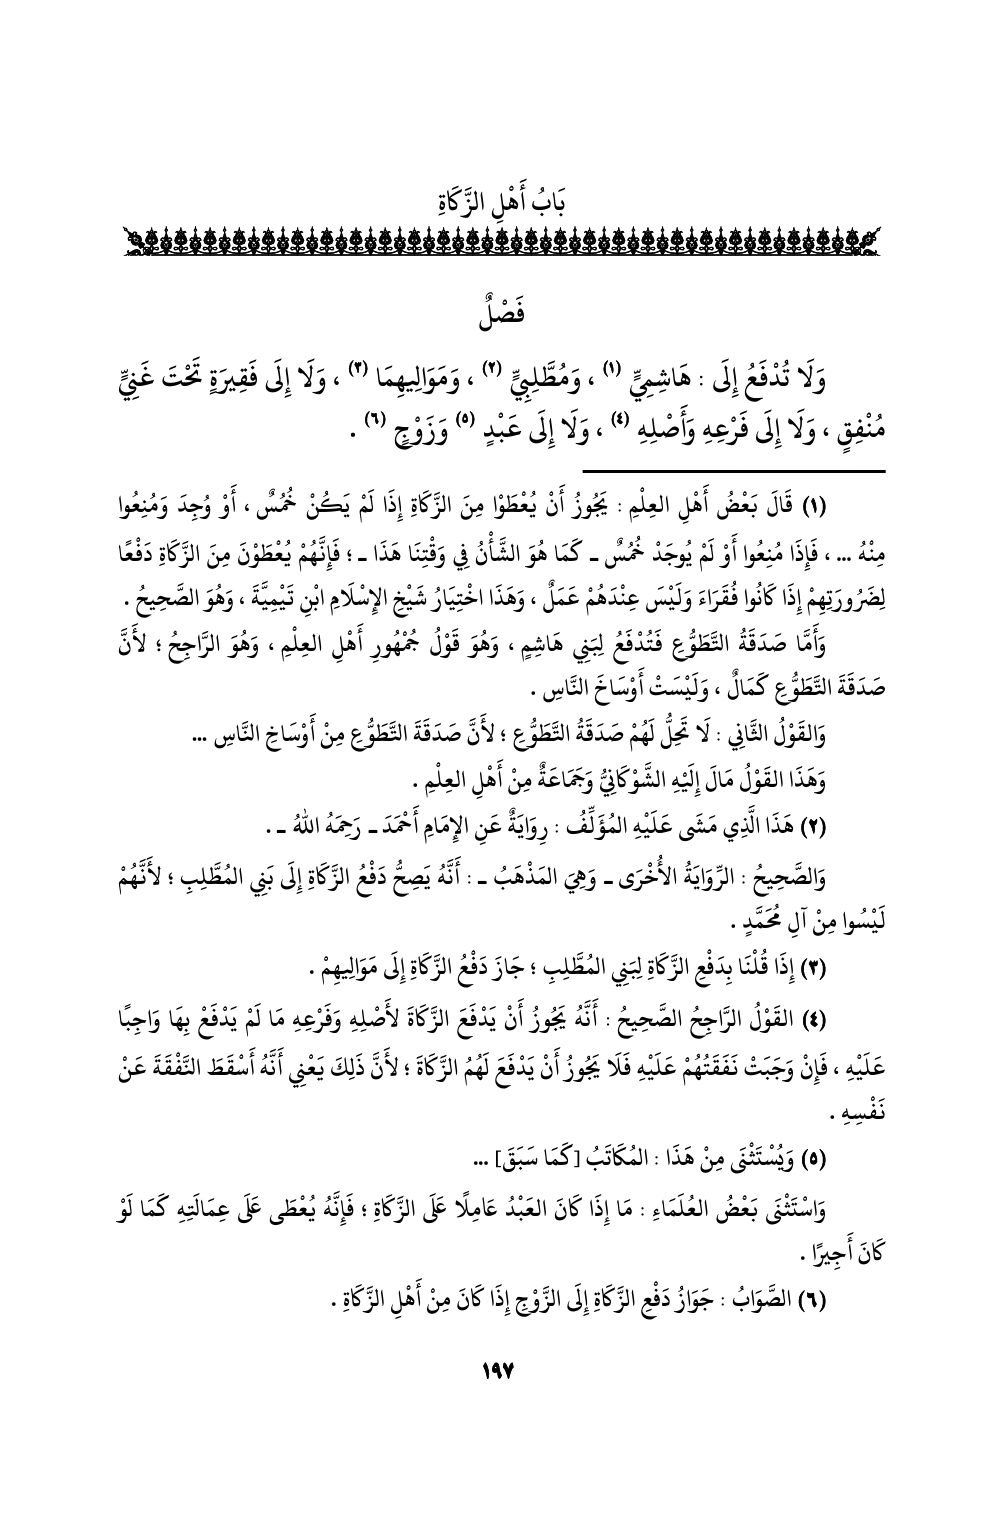 بَابُ أَهْلِ الزَّكَاةِ
فَصْلٌ
وَلَا تُدْفَعُ إِلَى : هَاشِمِيٍّ (١) ، وَمُطَّلِبِيٍّ (٢) ، وَمَوَالِيهِمَا (٣) ، وَلَا إِلَى فَقِيرَةٍ تَحْتَ غَنِيٍّ
مُنْفِقٍ ، وَلَا إِلَى فَرْعِهِ وَأَصْلِهِ (٤) ، وَلَا إِلَى عَبْدٍ (٥) وَزَوْجٍ (٦) .
(١) قَالَ بَعْضُ أَهْلِ العِلْمِ : يَجُوزُ أَنْ يُعْطَوْا مِنَ الزَّكَاةِ إِذَا لَمْ يَكُنْ خُمُسٌ ، أَوْ وُجِدَ وَمُنِعُوا
مِنْهُ ... ، فَإِذَا مُنِعُوا أَوْ لَمْ يُوجَدْ خُمُسٌ ـ كَمَا هُوَ الشَّأْنُ فِي وَقْتِنَا هَذَا ـ ؛ فَإِنَّهُمْ يُعْطَوْنَ مِنَ الزَّكَاةِ دَفْعًا
لِضَرُورَتِهِمْ إِذَا كَانُوا فُقَرَاءَ وَلَيْسَ عِنْدَهُمْ عَمَلٌ ، وَهَذَا اخْتِيَارُ شَيْخِ الإِسْلَامِ ابْنِ تَيْمِيَّةَ ، وَهُوَ الصَّحِيحُ .
وَأَمَّا صَدَقَةُ التَّطَوُّعِ فَتُدْفَعُ لِبَنِي هَاشِمٍ ، وَهُوَ قَوْلُ جُمْهُورِ أَهْلِ العِلْمِ ، وَهُوَ الرَّاجِحُ ؛ لأَنَّ
صَدَقَةَ التَّطَوُّعِ كَمَالٌ ، وَلَيْسَتْ أَوْسَاخَ النَّاسِ .
وَالقَوْلُ الثَّانِي : لَا تَحِلُّ لَهُمْ صَدَقَةُ التَّطَوُّعِ ؛ لأَنَّ صَدَقَةَ التَّطَوُّعِ مِنْ أَوْسَاخِ النَّاسِ ...
وَهَذَا القَوْلُ مَالَ إِلَيْهِ الشَّوْكَانِيُّ وَجَمَاعَةٌ مِنْ أَهْلِ العِلْمِ .
(٢) هَذَا الَّذِي مَشَى عَلَيْهِ المُؤَلِّفُ : رِوَايَةٌ عَنِ الإِمَامِ أَحْمَدَ ـ رَحِمَهُ اللهُ ـ .
وَالصَّحِيحُ : الرِّوَايَةُ الأُخْرَى ـ وَهِيَ المَذْهَبُ ـ : أَنَّهُ يَصِحُّ دَفْعُ الزَّكَاةِ إِلَى بَنِي المُطَّلِبِ ؛ لأَنَّهُمْ
لَيْسُوا مِنْ آلِ مُحَمَّدٍ .
(٣) إِذَا قُلْنَا بِدَفْعِ الزَّكَاةِ لِبَنِي المُطَّلِبِ ؛ جَازَ دَفْعُ الزَّكَاةِ إِلَى مَوَالِيهِمْ .
(٤) القَوْلُ الرَّاجِحُ الصَّحِيحُ : أَنَّهُ يَجُوزُ أَنْ يَدْفَعَ الزَّكَاةَ لأَصْلِهِ وَفَرْعِهِ مَا لَمْ يَدْفَعْ بِهَا وَاجِبًا
عَلَيْهِ ، فَإِنْ وَجَبَتْ نَفَقَتُهُمْ عَلَيْهِ فَلَا يَجُوزُ أَنْ يَدْفَعَ لَهُمُ الزَّكَاةَ ؛ لأَنَّ ذَلِكَ يَعْنِي أَنَّهُ أَسْقَطَ النَّفْقَةَ عَنْ
نَفْسِهِ .
(٥) وَيُسْتَثْنَى مِنْ هَذَا : المُكَاتَبُ [كَمَا سَبَقَ] ...
وَاسْتَثْنَى بَعْضُ العُلَمَاءِ : مَا إِذَا كَانَ العَبْدُ عَامِلًا عَلَى الزَّكَاةِ ؛ فَإِنَّهُ يُعْطَى عَلَى عِمَالَتِهِ كَمَا لَوْ
كَانَ أَجِيرًا .
(٦) الصَّوَابُ : جَوَازُ دَفْعِ الزَّكَاةِ إِلَى الزَّوْجِ إِذَا كَانَ مِنْ أَهْلِ الزَّكَاةِ .
١٩٧